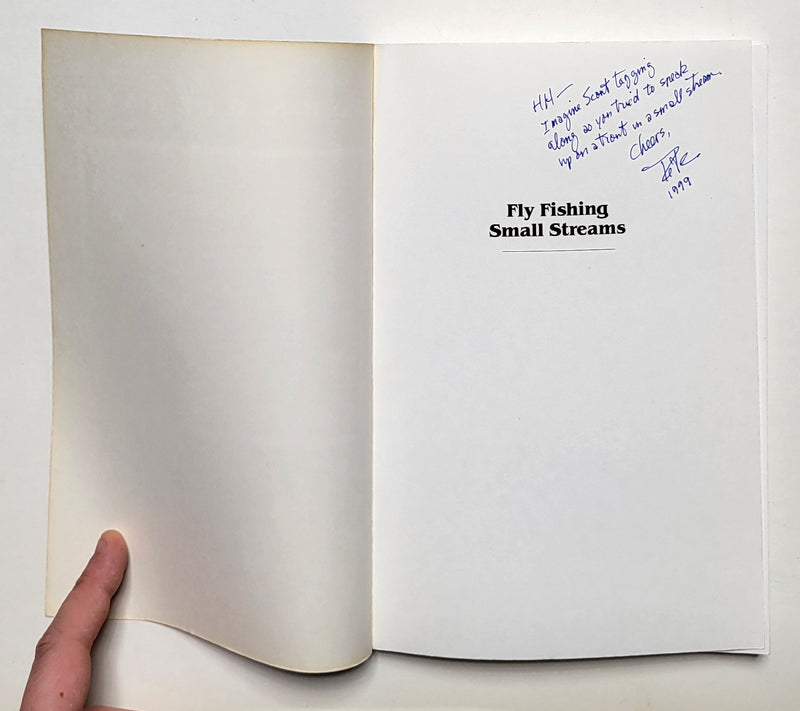 HH—
Imagine Scout tagging
along as you tried to sneak
up on a trout in a small stream.
Cheers,
1999
Fly Fishing
Small Streams